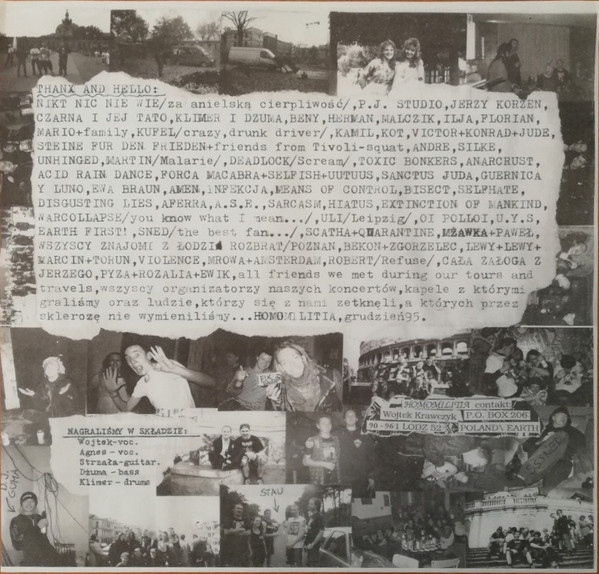 THANX AND HELLO:
NIKT NIC NIE WIE/za anielską cierpliwość/,P.J. STUDIO,JERZY KORZEN,
CZARNA I JEJ TATO,KLIMER I DZUMA,BENY,HERMAN,MALCZIK,ILJA,FLORIAN,
MARIO+family,KUFEL/crazy,drunk driver/,KAMIL,KOT,VICTOR+KONRAD+JUDE,
STEINE FUR DEN FRIEDEN+friends from Tivoli-squat,ANDRE,SILKE,
UNHINGED,MARTIN/Malarie/,DEADLOCK/Scream/,TOXIC BONKERS,ANARCRUST,
ACID RAIN DANCE,FORCA MACABRA+SELFISH+UUTUUS,SANCTUS JUDA,GUERNICA
Y LUNO,EWA BRAUN,AMEN,INFEKCJA,MEANS OF CONTROL,BISECT,SELFHATE,
DISGUSTING LIES,AFERRA,A.S.E.,SARCASM,HIATUS,EXTINCTION OF MANKIND,
WARCOLLAPSE/you know what I mean.../,ULI/Leipzig/,OI POLLOI,U.Y.S,
EARTH FIRST!,SNED/the best fan.../,SCATHA+QUARANTINE,MŻAWKA+PAWEŁ,
WSZYSCY ZNAJOMI Z ŁODZI ROZBRAT/POZNAN,BEKON+ZGORZELEC,LEWY+LEWY+
MARCIN+TORUN,VIOLENCE,MROWA+AMSTERDAM,ROBERT/Refuse/,CAŁA ZAŁOGA Z
JERZEGO,PYZA+ROZALIA+EWIK,all friends we met during our tours and
travels,wszyscy organizatorzy naszych koncertów,kapele z którymi
graliśmy oraz ludzie,którzy się z nami zetknęli,a których przez
sklerozę nie wymieniliśmy...HOMOMILITIA,grudzień95.
HOMOMILITIA contakt:
Wojtek Krawczyk P.O. BOX 206
90-961 LODZ 52 POLAND\EARTH
NAGRALIŚMY W SKŁADZIE:
Wojtek-voc.
Agnes-voc.
Strzała-guitar.
Dżuma-bass
Klimer-drums
STAU